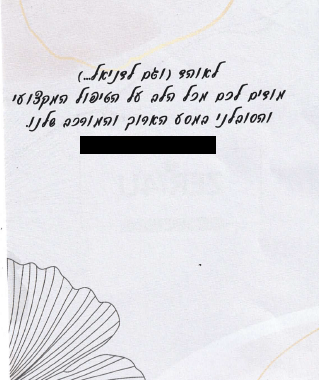 לאוהד (וגם לדניאל...)
מודים לכם מכל הלב על הטיפול המקצועי
והסובלני במסע הארוך והמורכב שלנו.